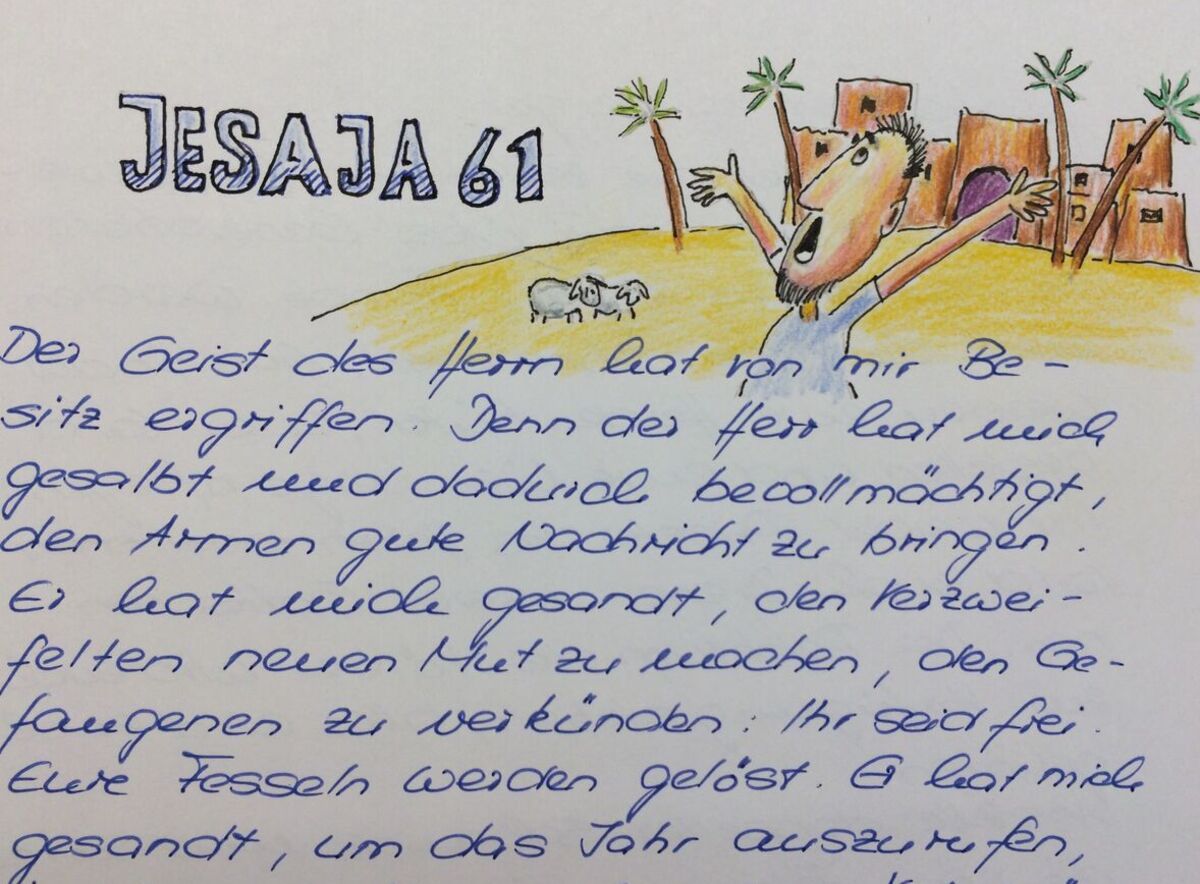 JESAJA 61
Der Geist des Herrn hat von mir Be-
sitz ergriffen. Denn der Herr hat mich
gesalbt und dadurch bevollmächtigt,
den Armen gute Nachricht zu bringen.
Er hat mich gesandt, den Verzwei-
felten neuen Mut zu machen, den Ge-
fangenen zu verkünden: Ihr seid frei.
Eure Fesseln werden gelöst. Er hat mich
gesandt, um das Jahr auszurufen,